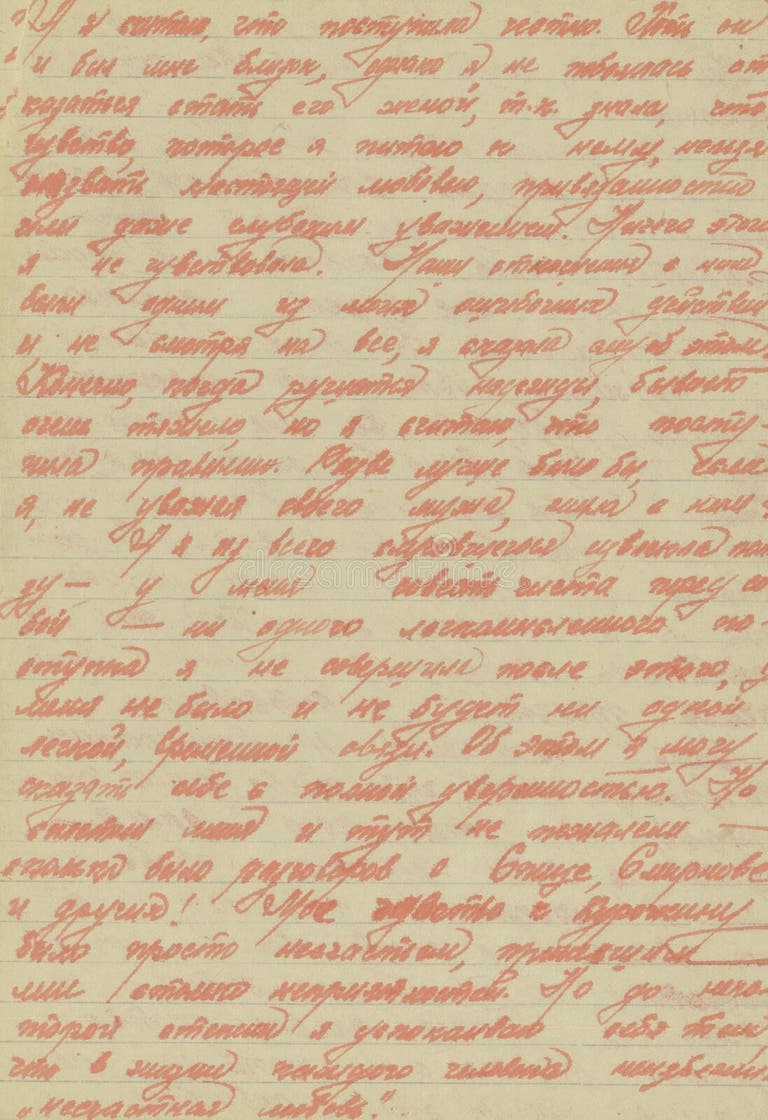 И я считаю, что поступила честно. Хоть он
и был мне близок, однако я не побоялась от
казаться стать его женой, т.к. знала, что
чувство, которое я питаю к нему, нельзя
назвать настоящей любовью, привязанностью
или даже глубоким уважением. Ничего этого
я не чувствовала. Наши отношения с ним
были одним из моих ошибочных действий
и не смотря на все, я сказала ему об этом.
Конечно, когда рушатся надежды, бывает
очень тяжело, но я считаю, что посту-
пила правильно. Разве лучше было бы, если
я, не уважая своего мужа, жила с ним?
И я из всего случившегося извлекла поль
зу — у меня совесть чиста перед со
бой — ни одного легкомысленного по-
ступка я не совершила после этого, у
меня не было и не будет ни одной
легкой, временной связи. Об этом я могу
сказать себе с полной уверенностью. Но
сплетни меня и тут не пожалели —
сколько было разговоров о Смирнове
и других! Мое чувство к Курочкину
было просто несчастьем, принесшим
мне столько неприятностей. Но до неко-
торой степени я успокаиваю себя тем,
что в жизни каждого человека неизбежна
„несчастная любовь."
dreamstime